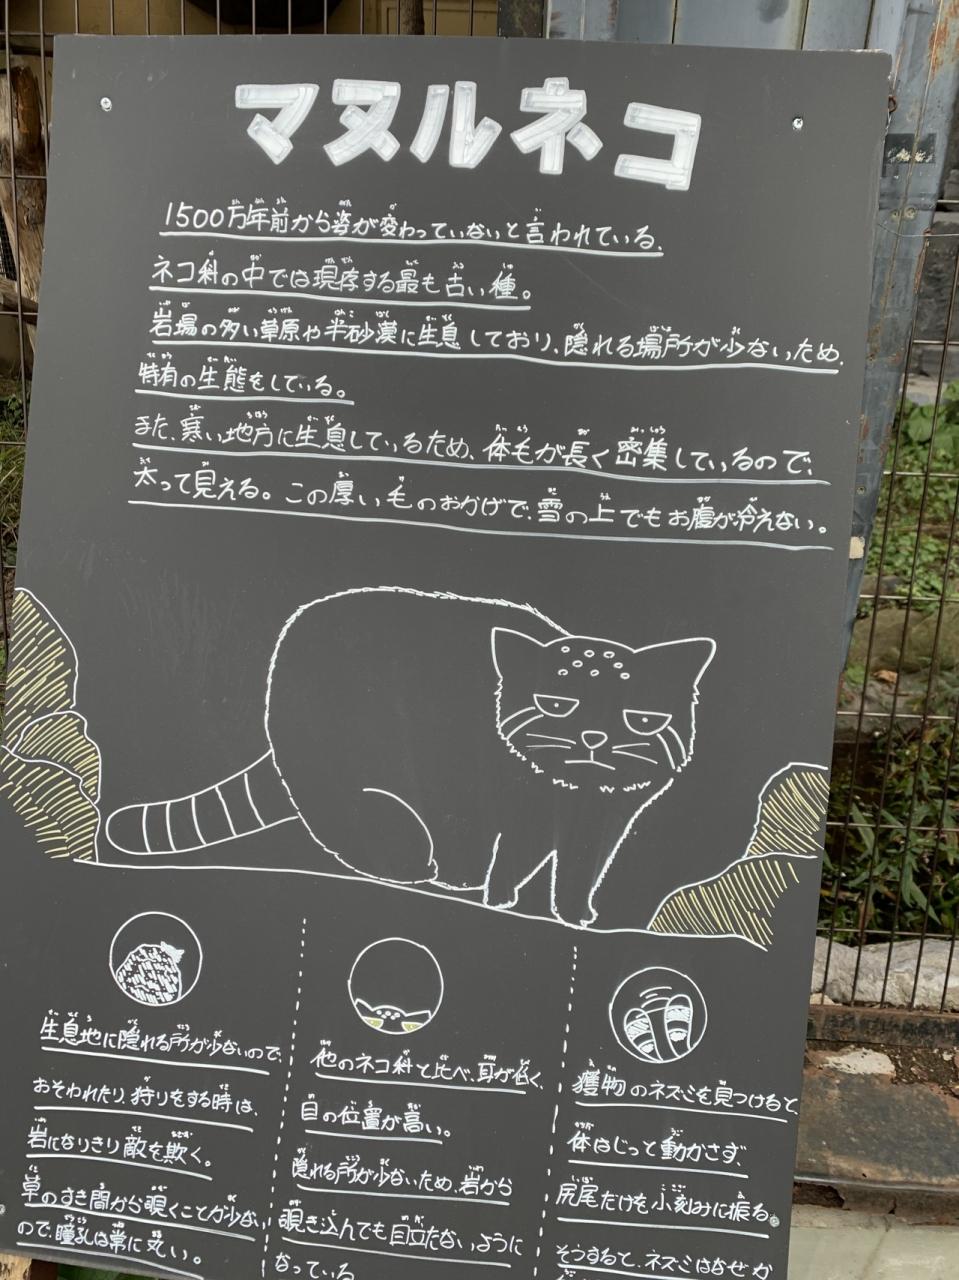 マヌルネコ
1500万年前から姿が変わっていないと言われている。
ネコ科の中では現存する最も古い種。
岩場の多い草原や半砂漠に生息しており、隠れる場所が少ないため、
特有の生態をしている。
また、寒い地方に生息しているため、体毛が長く密集しているので、
太って見える。この厚い毛のおかげで、雪の上でもお腹が冷えない。
生息地に隠れる所が少ないので、
おそわれたり、狩りをする時は、
岩になりきり敵を欺く。
草のすき間から覗くことが少ない
ので、瞳孔は常に丸い。
他のネコ科と比べ、耳が低く、
目の位置が高い。
隠れる所が少ないため、岩から
覗き込んでも目立たないように
なっている
獲物のネズミを見つけると、
体はじっと動かさず、
尻尾だけを小刻みに振る。
そうすると、ネズミはなぜか